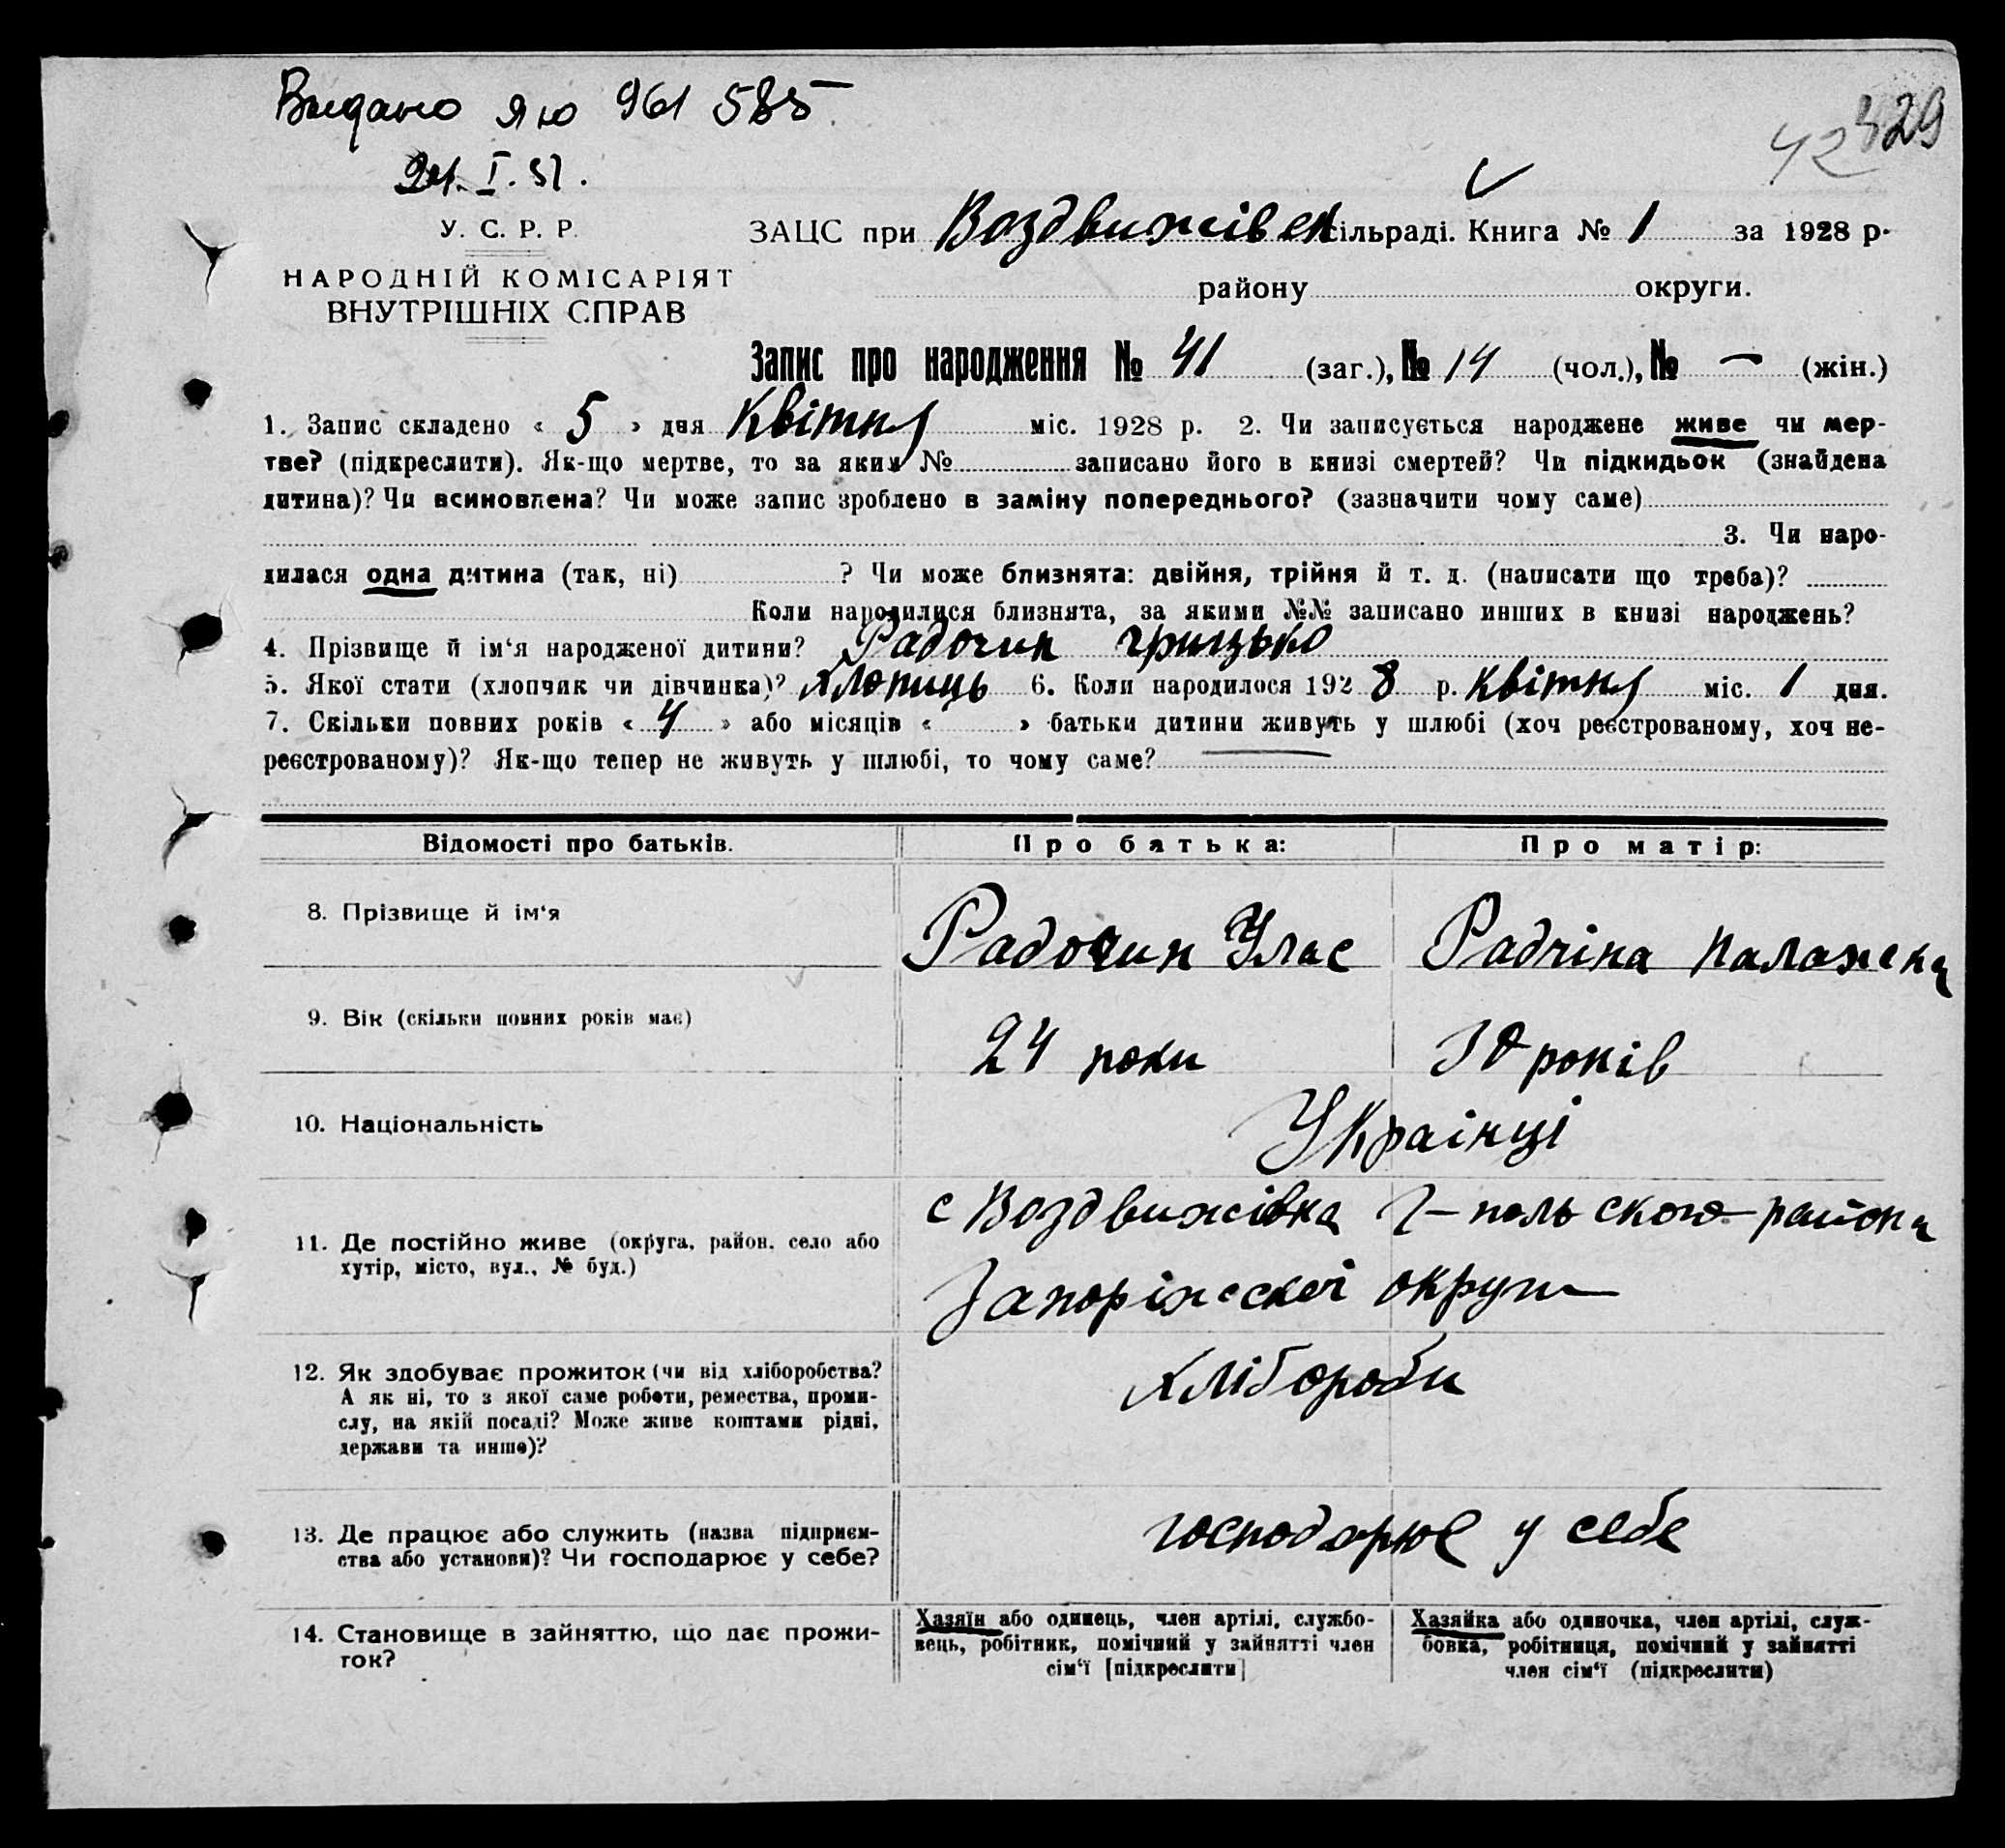 Видано ЯЮ 961 585
24. I. 51.
42 329
У. С. Р. Р.
НАРОДНІЙ КОМІСАРІЯТ
ВНУТРІШНІХ СПРАВ
ЗАЦС при Воздвижівск сільраді. Книга № 1 за 1928 р.
району округи.
Запис про народження № 41 (заг.), № 14 (чол.), № — (жін.)
1. Запис складено « 5 » дня Квітня міс. 1928 р. 2. Чи записується народжене живе чи мер-
тве? (підкреслити). Як-що мертве, то за яким № записано його в книзі смертей? Чи підкидьок (знайдена
дитина)? Чи всиновлена? Чи може запис зроблено в заміну попереднього? (зазначити чому саме)
3. Чи наро-
дилася одна дитина (так, ні) ? Чи може близнята: двійня, трійня й т. д. (написати що треба)?
Коли народилися близнята, за якими №№ записано инших в книзі народжень?
4. Прізвище й ім‘я народженої дитини? Радочин Грицько
5. Якої стати (хлопчик чи дівчинка)? Хлопиць 6. Коли народилося 192 8 р. Квітня міс. 1 дня.
7. Скільки повних років « 4 » або місяців « » батьки дитини живуть у шлюбі (хоч реєстрованому, хоч не-
реєстрованому)? Як-що тепер не живуть у шлюбі, то чому саме? —
Відомості про батьків. Про батька: Про матір:
8. Прізвище й ім‘я Радочин Улас Радчіна Палажка
9. Вік (скільки повних років має) 24 роки 30 років
10. Національність Українці
11. Де постійно живе (округа, район, село або
хутір, місто, вул., № буд.)
с Воздвижівка Г-польского района
Запоріжської округи
12. Як здобуває прожиток (чи від хліборобства?
А як ні, то з якої саме роботи, ремества, проми-
слу, на якій посаді? Може живе коштами рідні,
держави та инше)?
Хлібороби
13. Де працює або служить (назва підприєм-
ства або установи)? Чи господарює у себе?
господарює у себе
14. Становище в зайняттю, що дає прожи-
ток?
Хазяїн або одинець, член артілі, службо-
вець, робітник, помічний у зайнятті член
сім‘ї [підкреслити]
Хазяйка або одиночка, член артілі, служ-
бовка, робітниця, помічний у зайнятті
член сім‘ї (підкреслити)